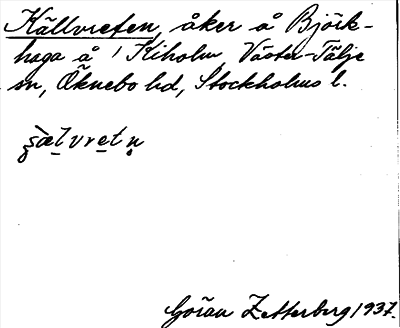 Källvreten, åker å Björk-
haga å 1 Kiholm Väster-Tälje
sn, Öknebo hd, Stockholms l.
Göran Zetterberg 1937.